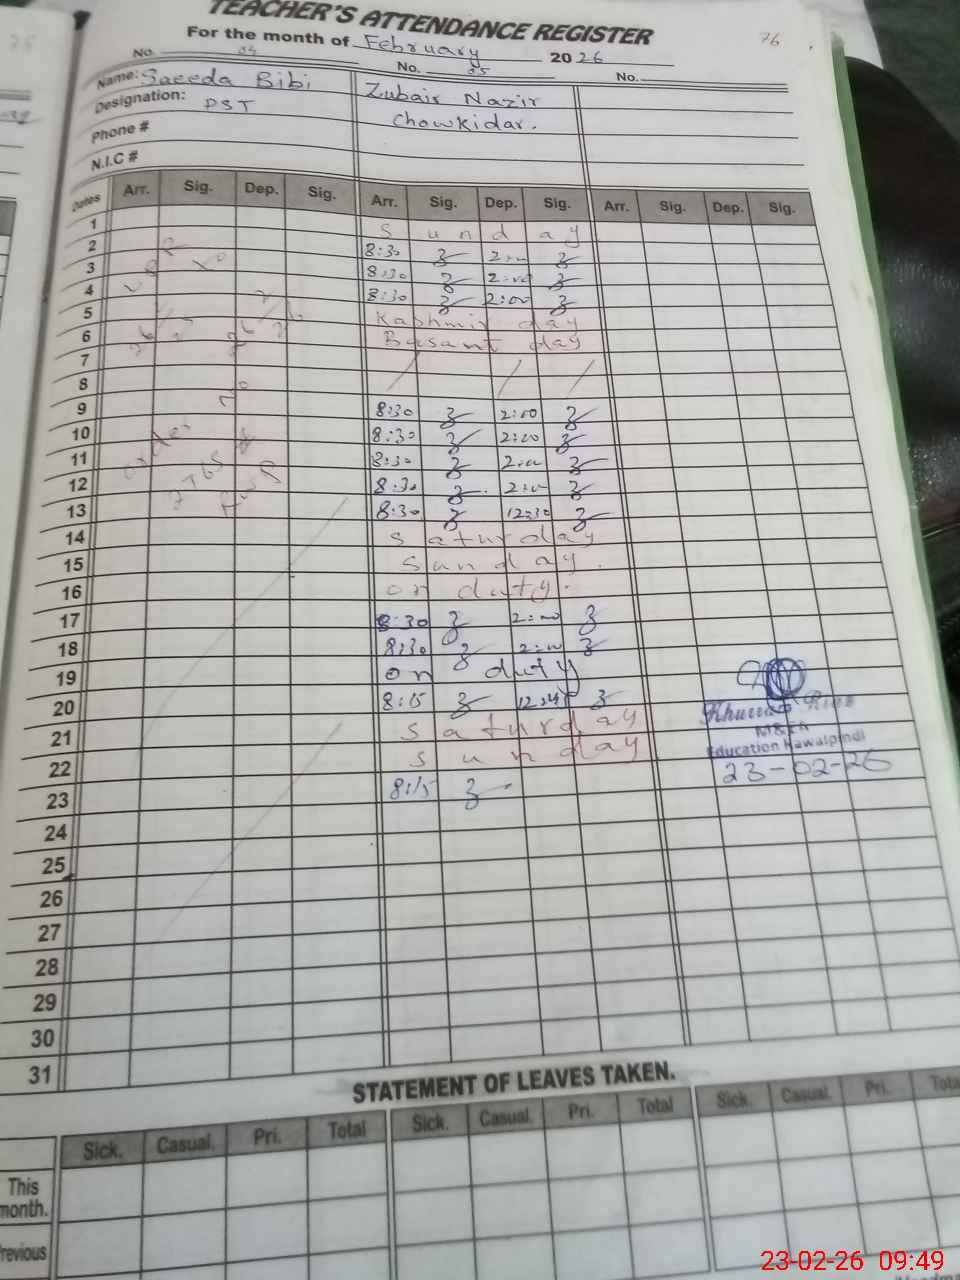 TEACHER'S ATTENDANCE REGISTER
76
For the month of February 2026
No. 04 No. 05 No.
Name: Saeeda Bibi Zubair Nazir
Designation: PST Chowkidar.
Phone #
N.I.C #
Dates Arr. Sig. Dep. Sig. Arr. Sig. Dep. Sig. Arr. Sig. Dep. Sig.
1 Sunday
2 8:30 2:00
3 8:30 2:00
4 8:30 2:00
5 Kashmir day
6 Basant day
7
8
9 8:30 2:00
10 8:30 2:00
11 8:30 2:00
12 8:30 2:00
13 8:30 12:30
14 Saturday
15 Sunday.
16 on duty.
17 8:30 2:00
18 8:30 2:00
19 on duty
20 8:15 12:45
21 Saturday
22 Sunday
23 8:15
24
25
26
27
28
29
30
31
order No
2765
M&EA
Education Rawalpindi
23-02-26
STATEMENT OF LEAVES TAKEN.
Sick. Casual. Pri. Total Sick. Casual. Pri. Total Sick. Casual. Pri. Total
This month.
Previous
23-02-26 09:49